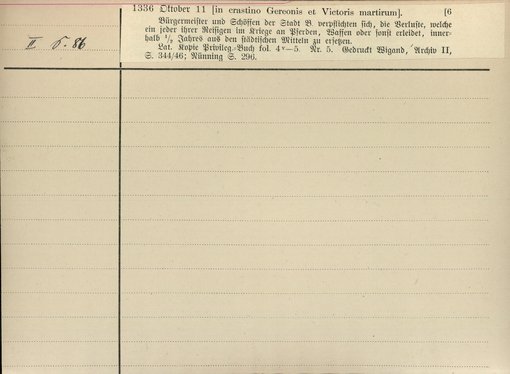 1336 Oktober 11 [in crastino Gereonis et Victoris martirum]. [6
Bürgermeister und Schöffen der Stadt B. verpflichten sich, die Verluste, welche
ein jeder ihrer Reisigen im Kriege an Pferden, Waffen oder sonst erleidet, inner-
halb 1/2 Jahres aus den städtischen Mitteln zu ersetzen.
Lat. Kopie Privileg.-Buch fol. 4v—5. Nr. 5. Gedruckt Wigand, Archiv II,
S. 344/46; Nünning S. 296.
II S. 86